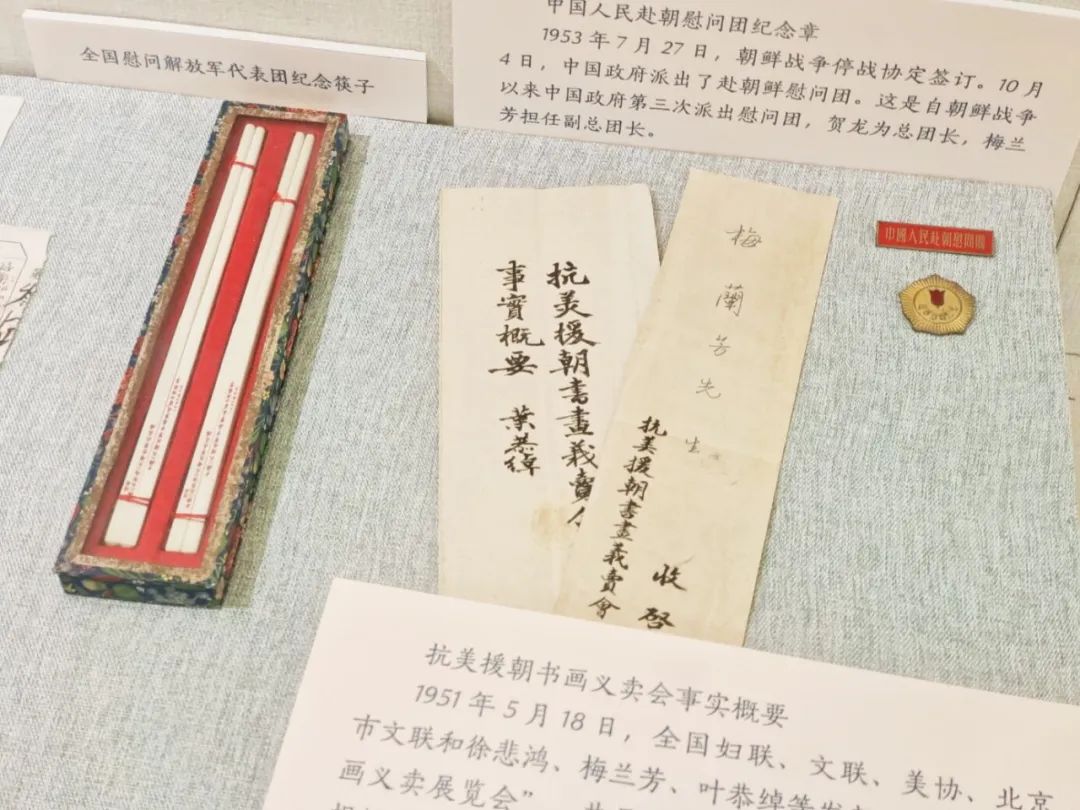 全国慰问解放军代表团纪念筷子
中国人民赴朝慰问团纪念章
1953年7月27日，朝鲜战争停战协定签订。10月
4日，中国政府派出了赴朝鲜慰问团。这是自朝鲜战争
以来中国政府第三次派出慰问团，贺龙为总团长，梅兰
芳担任副总团长。
抗美援朝書畫義賣
事實概要 葉恭綽
梅蘭芳先生 收啓
抗美援朝書畫義賣會
中國人民赴朝慰問團
抗美援朝书画义卖会事实概要
1951年5月18日，全国妇联、文联、美协、北京
市文联和徐悲鸿、梅兰芳、叶恭绰等发
画义卖展览会”